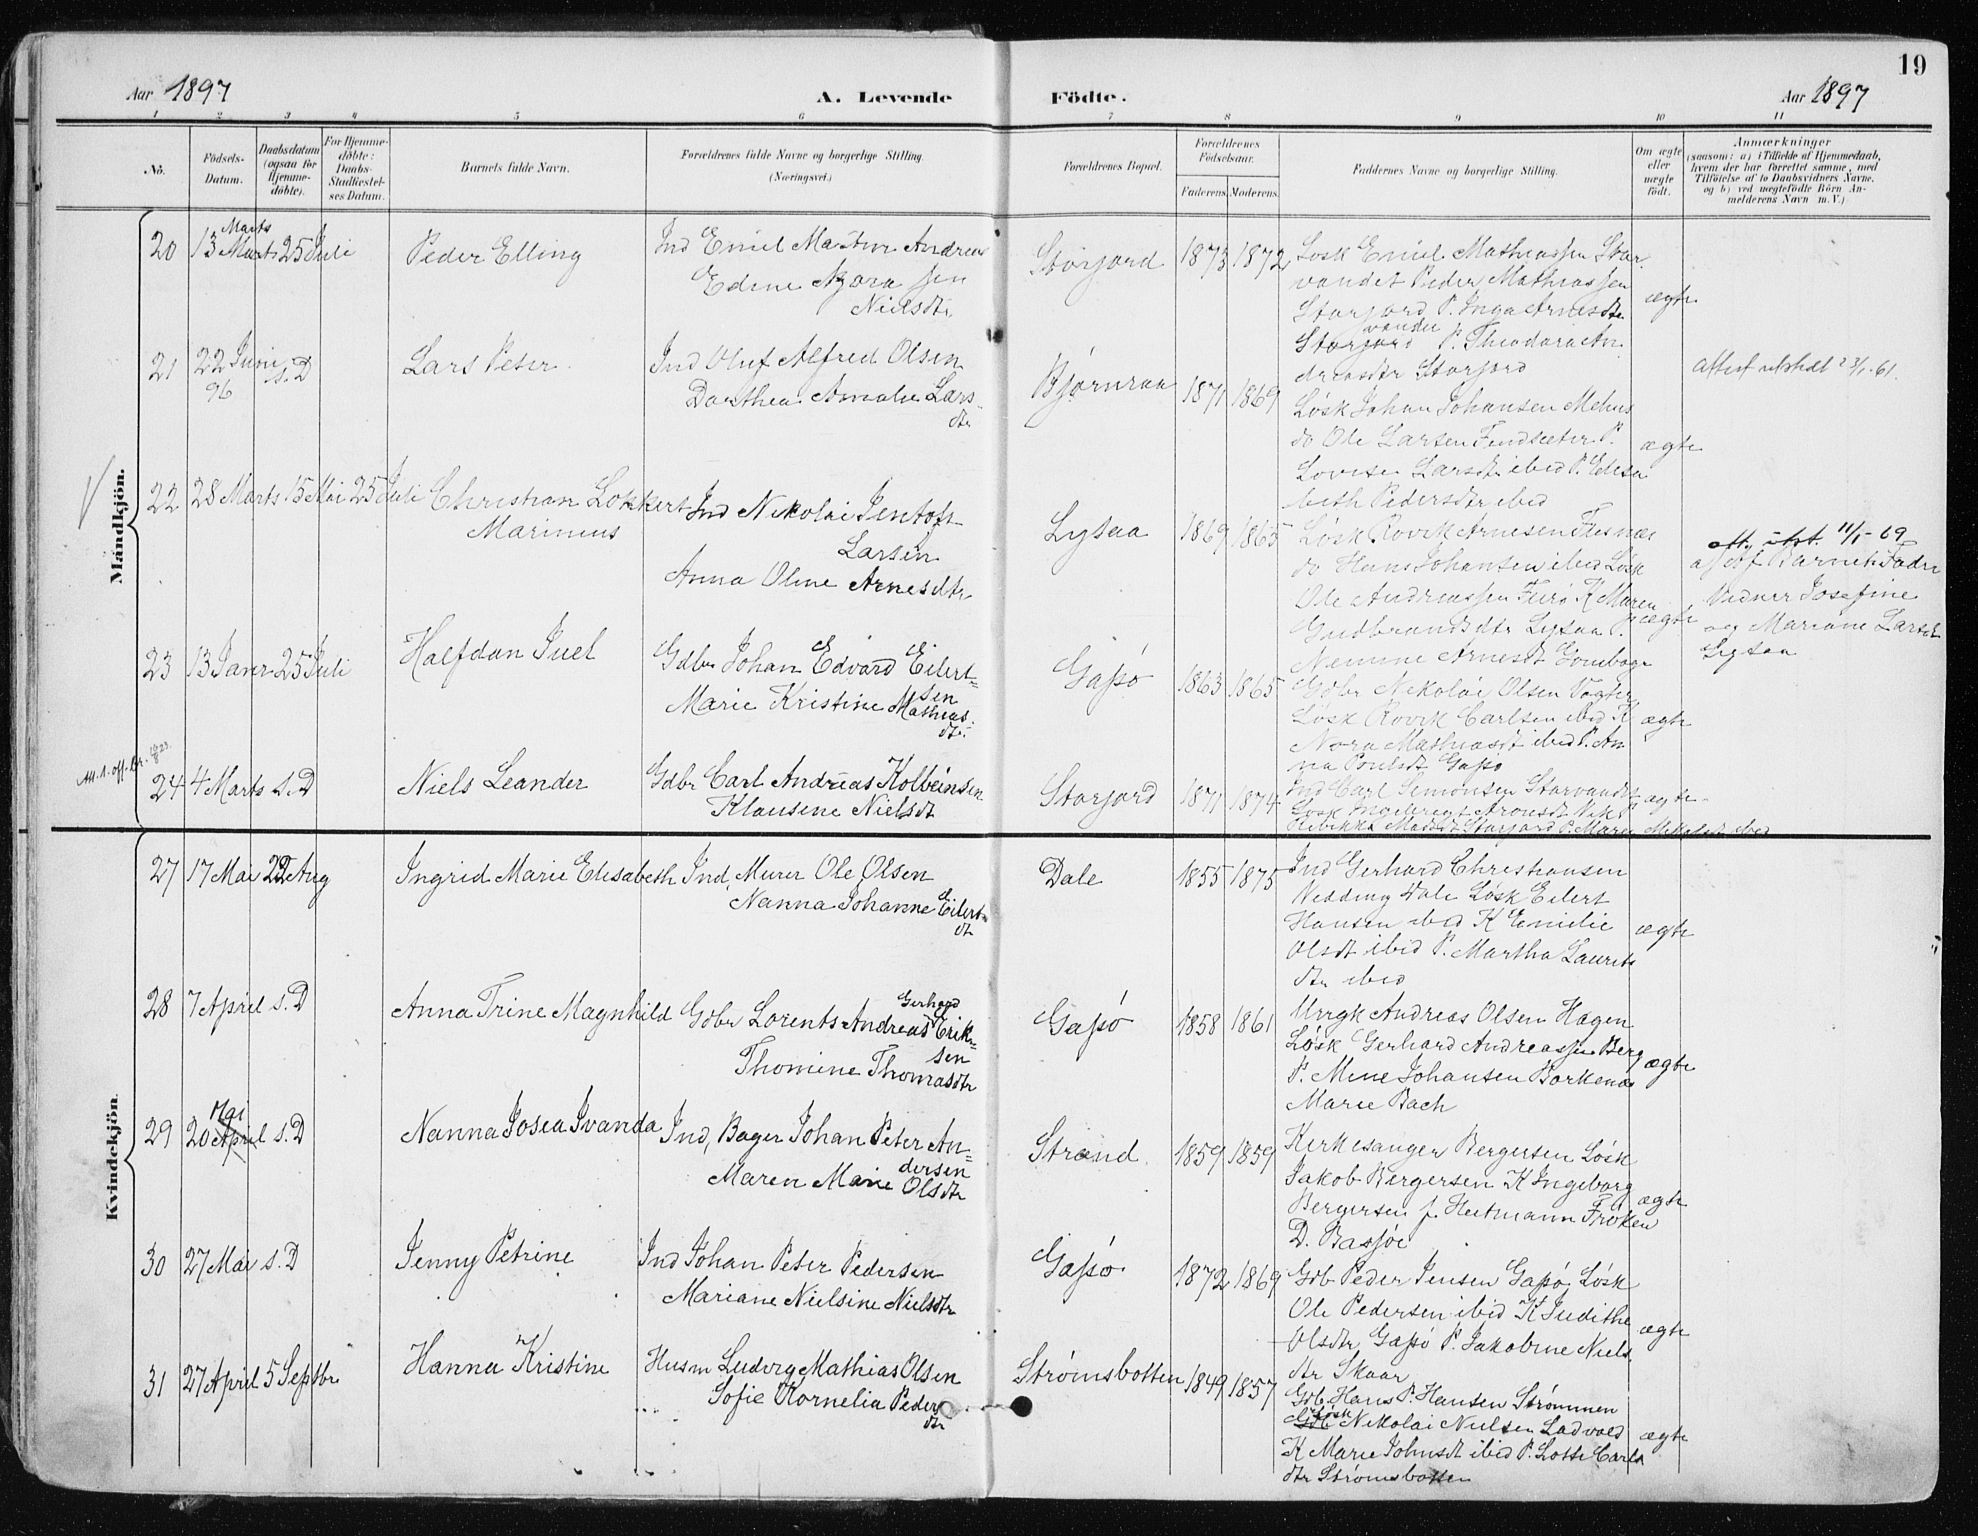 19
Aar 1897
A. Levende
Födte.
Aar 1897
1 2 3 4 5 6 7 8 9 10 11
No.
Födsels-
Datum.
Daabsdatum
(ogsaa for
Hjemme-
döbte).
For Hjemme-
döbte:
Daabs-
Stadfæstel-
ses Datum.
Barnets fulde Navn.
Forældrenes fulde Navne og borgerlige Stilling.
(Næringsvei.)
Forældrenes Bopæl.
Forældrenes
Födselsaar.
Faderens. Moderens.
Faddernes Navne og borgerlige Stilling.
Om ægte
eller
uægte
födt.
Anmærkninger
(saasom: a) i Tilfælde af Hjemmedaab,
hvem der har forrettet samme, med
Tilföielse af to Daabsvidners Navne.
og b) ved uægtefödte Börn An-
melderens Navn m. V.)
Mandkjön.
20
Marts
13 Marts 25 Juli
Peder Elling
Ind Emil Martin Andreas
sen
Edine Nzora
Nielsdtr
Storjord
1873 1872
Løsk Emil Mathiassen Stor
vandet Peder Mathiassen
Storjord P. Inga Arnesdtr
vandet
Storjord P. Theodora An
dreasdtr Storjord
ægte
21
22 Juni s. D
96
Lars Peter
Ind Oluf Alfred Olsen
Dorthea Amalie Lars
dtr
Bjørnraa
1871 1869
Løsk Johan Johansen Mehus
do Ole Larsen Findsæter P.
Lovise Larsdtr ibid P. Elisa
beth Pedersdtr ibid
ægte
Attest utstedt 23/1-61.
22
28 Marts 15 Mai 25 Juli
Christian Lokkert
Marinius
Ind Nikolai Jentoft
Larsen
Anna Oline Arnesdtr
Lysaa
1869 1865
Løsk Rovik Arnesen Flesnæs
do Hans Johansen ibid Løsk
Ole Andreassen Furø K Maren
Gudbrandsdtr Lysaa P.
Nemine Arnesdt
ægte
att. utst. 11/1-69
af Barnets Fader
Vidner Josefine
og Mariane Larsdt
Lysaa
23
13 Janr 25 Juli
Halfdan Juel
Gdbr Johan Edvard Eilert-
sen
Marie Kristine Mathias
dtr.
Gapø
1863 1865
Gdbr Nikolai Olsen
Løsk Rovik Carlsen ibid K
Nora Mathiasdt ibid P. An
na Poulsdt Gapø
ægte
24
4 Marts s. D
Niels Leander
Gdbr Carl Andreas Kolbeinsen
Klausine Nielsdt
Storjord
1871 1874
Ind Carl Simonsen Storvandet
Løsk Ingebregt Aronsdt Vik P
Rebikka Madsdt Storjord P. Maren Mikalsdt ibid
ægte
Kvindekjön.
27
17 Mai 22 Aug
Ingrid Marie Elisabeth
Ind, Murer Ole Olsen
Nanna Johanne Eilerts
dtr
Dale
1855 1875
Ind Gerhard Christiansen
Vedding Dale Løsk Eilert
Hansen ibid K Emilie
Olsdt ibid P. Martha Laurits
dtr ibid
ægte
28
7 April s. D
Anna Trine Magnhild
Gerhard
Gdbr Lorents Andreas Erik-
sen
Thomine Thomasdtr
Gapø
1858 1861
Ungk Andreas Olsen Hagen
Løsk Gerhard Andreassen Berg
P. Mine Johansen Borkenæs
Marie Bach
ægte
29
Mai
20 April s. D
Nanna Josea Ivanda
Ind, Bager Johan Peter An-
dersen
Maren Marie Olsdtr
Strand
1859 1859
Kirkesanger Bergersen Løsk
Jakob Bergersen K Ingeborg
Bergersen f. Heitmann Frøken
D. Bassøe
ægte
30
27 Mai s. D
Jenny Petrine
Ind Johan Peter Pedersen
Mariane Nielsine Nielsdtr
Gapø
1872 1869
Gdb Peder Jensen Gapø, Løsk
Ole Pedersen ibid K Judithe
Olsdtr Gapø P. Jakobine Niels
dtr Skaar
ægte
31
27 April 5 Septbr
Hanna Kristine
Husm Ludvig Mathias Olsen
Sofie Kornelia Peders
dtr
Strømsbotten
1849 1857
Gdb Hans P. Hansen Strømmen
Løsk
Gdb Nikolai Nielsen Ladvold
K Marie Johnsdt ibid P. Lotte Carls
dtr Strømsbotten
ægte